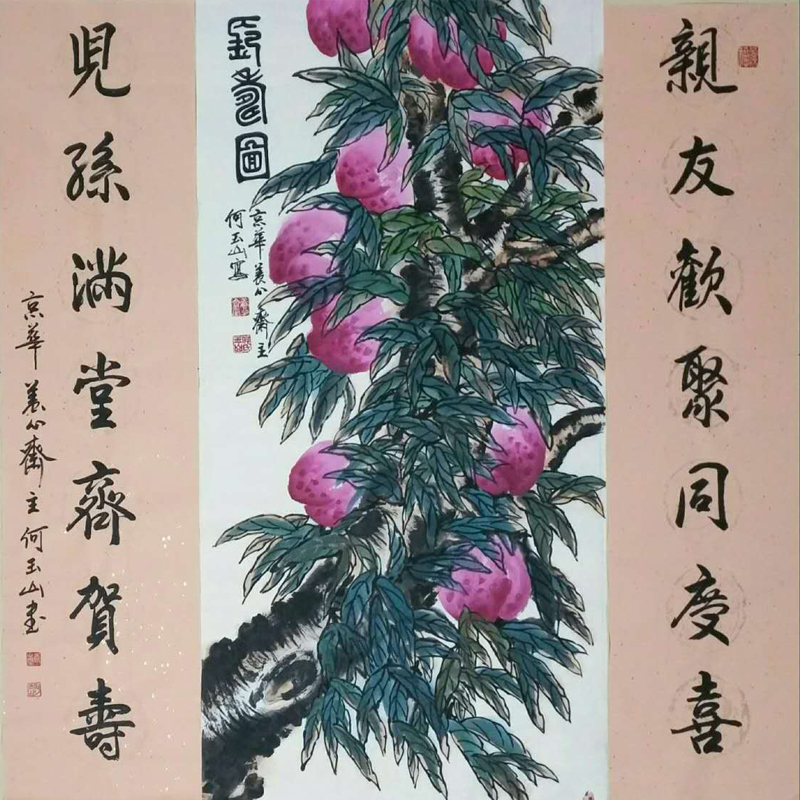 親友歡聚同慶喜
壽圖
京華養心齋主
何玉山寫
兒孫滿堂齊賀壽
京華養心齋主何玉山書